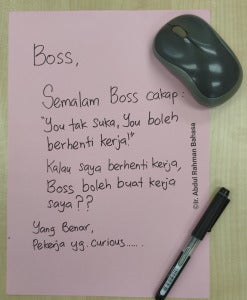 Boss,
Semalam Boss cakap:
"You tak suka, You boleh
berhenti kerja!"
Kalau saya berhenti kerja,
Boss boleh buat kerja
saya??
Yang Benar,
Pekerja yg. Curious.....
©Ir. Abdul Rahman Bahasa